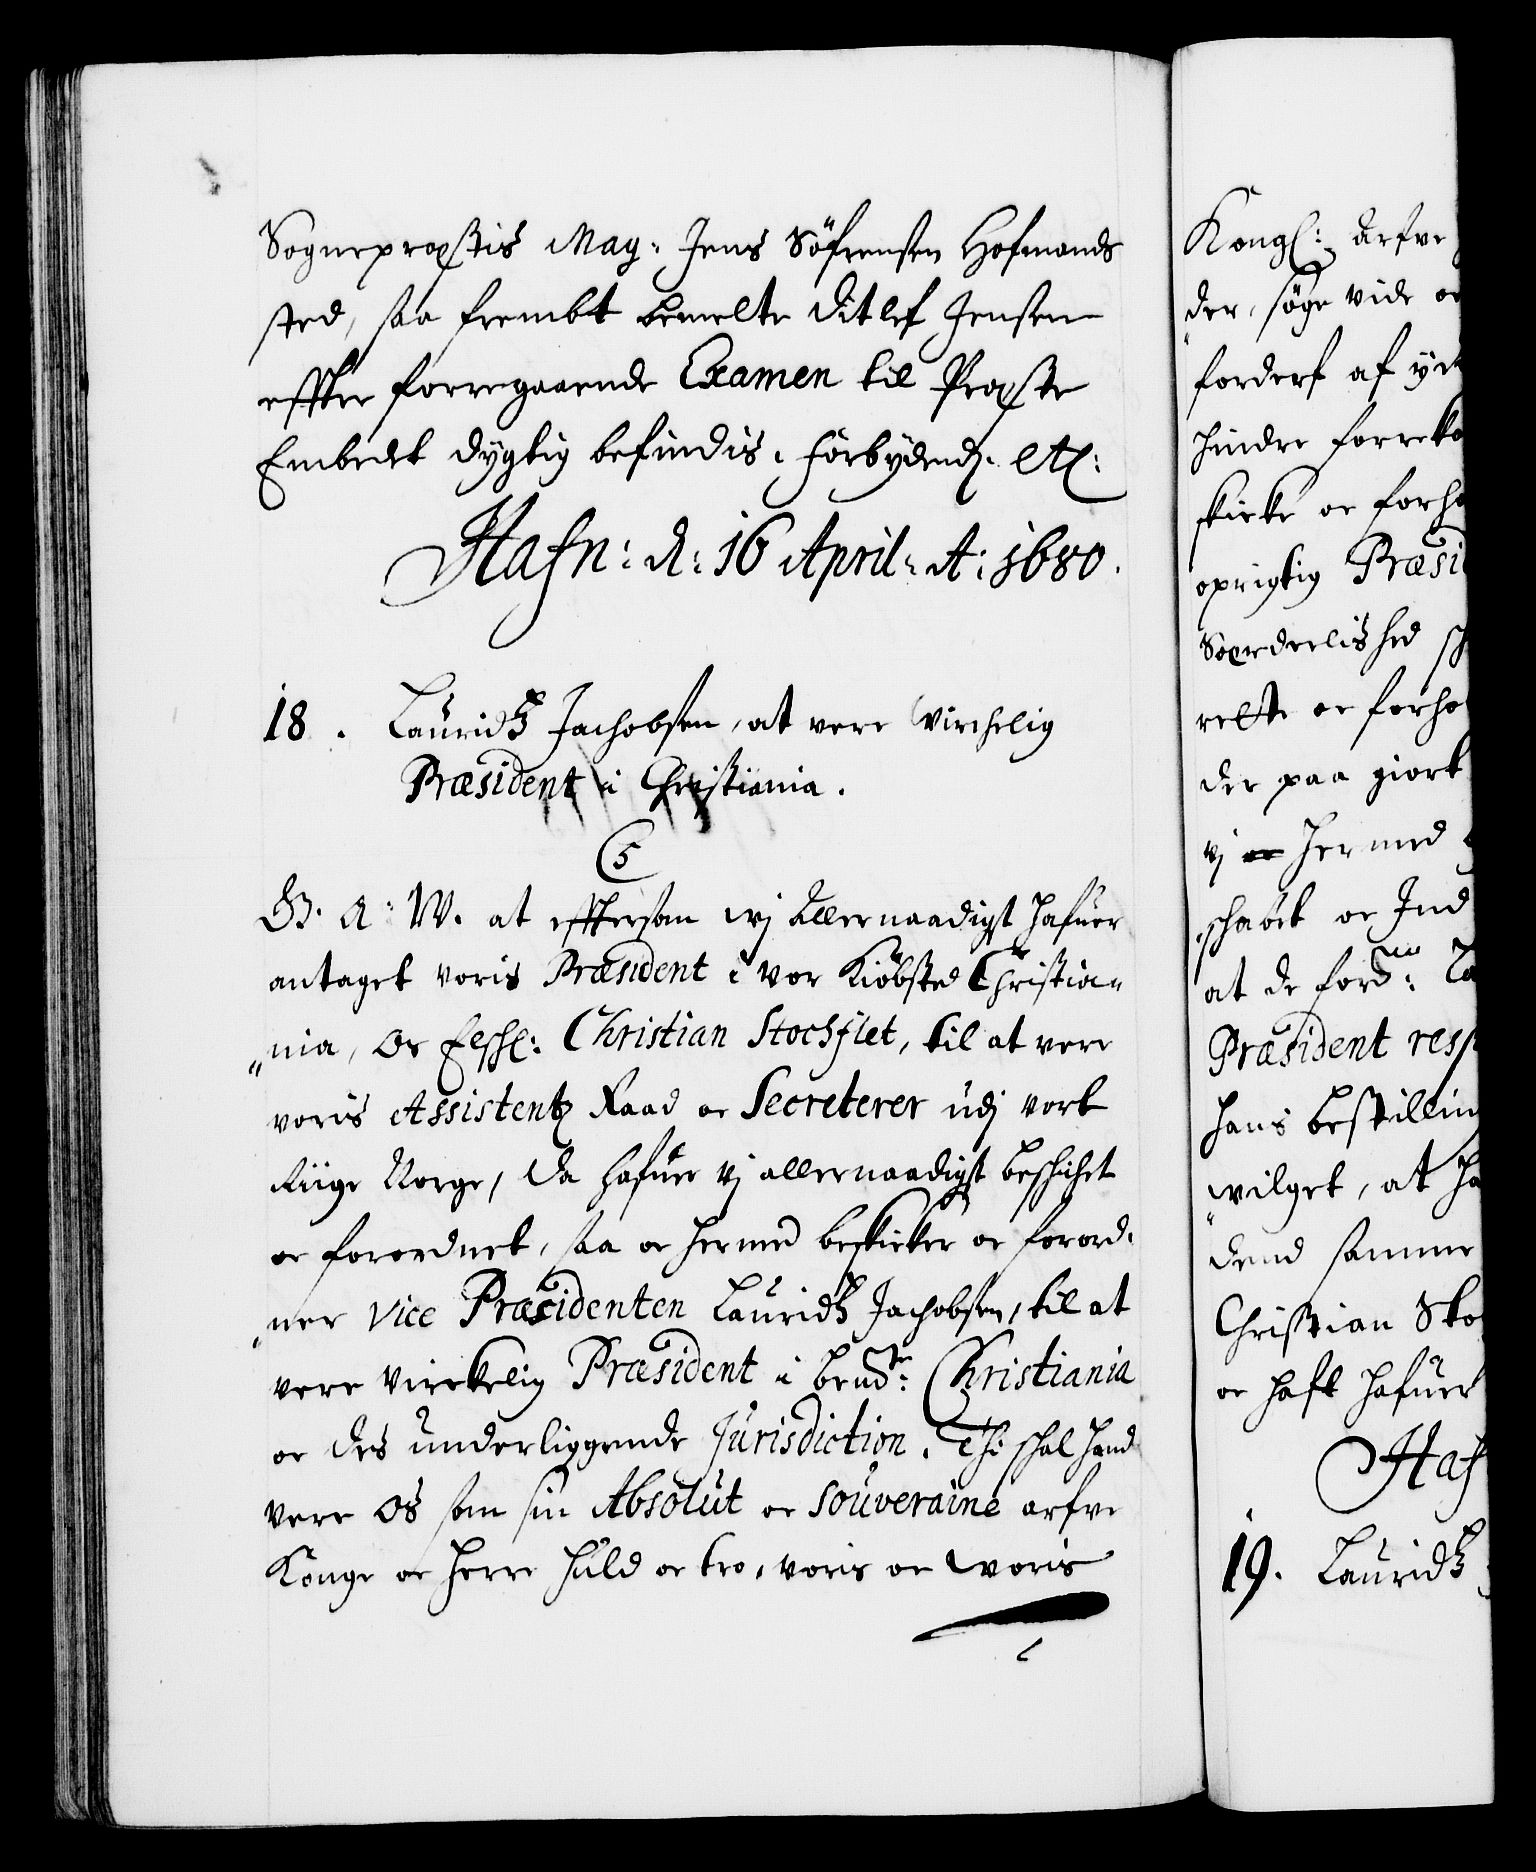 Sogneprostis Mag: Jens Söfrensen Hofmands
sted, saa frembt bemelte Ditlef Jensen
effter forregaaende Examen til Proste
Embedet dygtig befindis. Forbydend. etc:
Hafn: d: 16 April. A: 1680.
18. Lauridtz Jachobsen, at vere virchelig
Præsident i Christiania.
C5
G. A: W. at effterson wj Allernaadigst hafuer
antaget voris Præsident i vor Kiöbsted Christia-
nia, Os Elschl: Christian Stochflet, til at vere
voris Assistentz Raad oc Secreterer udj vort
Riige Norge, da hafuer vj allernaadigst beschichet
oc forordnet, saa oc hermed beskicker oc forord-
ner Vice Præsidenten Lauridtz Jachobsen, til at
vere virckelig Præsident i bemdte: Christiania
oc des underliggende Jurisdiction. Thi schal hand
vere Os som sin Absolut oc Souveraine arfve
Konge oc Herre huld oc tro, voris oc woris
Kongl: Arfve
der, söge vide oc
forderf af yd
hindre forreko
skicke oc forho
oprigtig Præsi
Soerdelished sch
rette oc forho
der paa giort
vj oc hermed
at de fordne: La
Præsident resp
hans bestilling
wilget, at ha
dend samme
Christian Sto
oc haft hafuer
Haf
19. Lauridtz